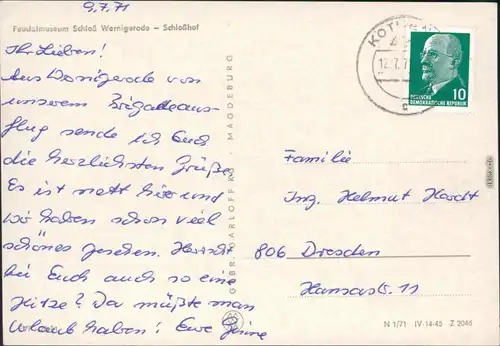 9.7.71
Feudalmuseum Schloß Wernigerode – Schloßhof
Ihr Lieben!
Aus Wernigerode von
unserem Brigadeaus-
flug sende ich Euch
die herzlichsten Grüße.
Es ist nett hier und
wir haben schon viel
schönes gesehen. Herrscht
bei Euch auch so eine
Hitze? Da müßte man
Urlaub haben! Eure
GEBR. GARLOFF KG, MAGDEBURG
12.7.71
10
DEUTSCHE
DEMOKRATISCHE REPUBLIK
Familie
Ing. Helmut Hardt
806 Dresden
Hansastr. 11
N 1/71 IV-14-45 Z 2046